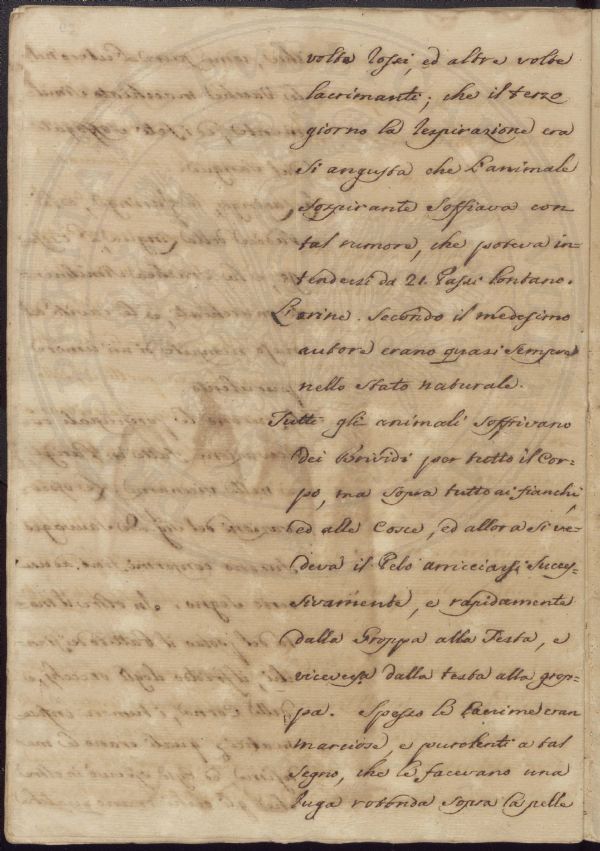 volte rossi, ed altre volte
lacrimanti; che il terzo
giorno la respirazione era
si angusta che l'animale
sospirante soffiava con
tal rumore, che poteva in=
tendersi da 21. Passi lontano.
L'orine. Secondo il medesimo
autore erano quasi sempre
nello stato naturale.
Tutti gli animali soffrivano
dei Brividi per tutto il Cor=
po, ma sopra tutto ai fianchi,
ed alle Cosce, ed allora si ve=
deva il Pelo arricciarsi succes=
sivamente, e rapidamente
dalla Groppa alla Testa, e
viceversa dalla testa alla grop=
pa. Spesso le Lacrime eran
marciose, e purolenti a tal
segno, che le facevano una
ruga rotonda sopra la pelle